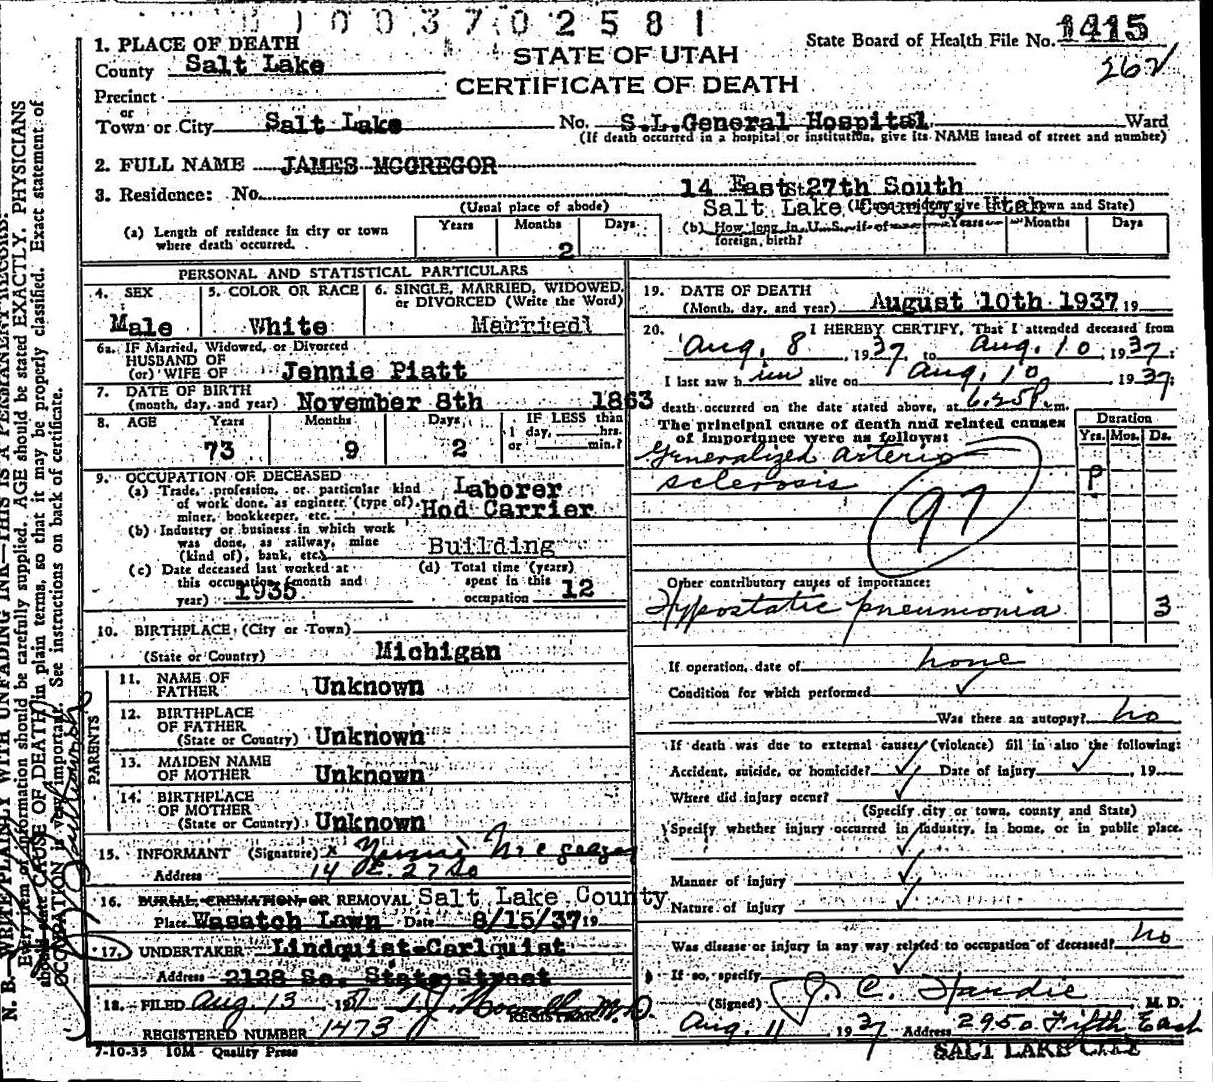 1003702581
1. PLACE OF DEATH
County Salt Lake
STATE OF UTAH
CERTIFICATE OF DEATH
State Board of Health File No. 1415
262
Precinct
or
Town or City Salt Lake No. S.L.General Hospital Ward
(If death occurred in a hospital or institution, give its NAME insead of street and number)
2. FULL NAME JAMES MCGREGOR
3. Residence: No. 14 East 27th South St.
(Usual place of abode) Salt Lake County Utah (If non-resident give town and State)
(a) Length of residence in city or town where death occurred. Years Months 2 Days
(b) How long in U. S. if of foreign birth? Years Months Days
PERSONAL AND STATISTICAL PARTICULARS
4. SEX Male
5. COLOR OR RACE White
6. SINGLE, MARRIED, WIDOWED, or DIVORCED (Write the Word) Married
6a. IF Married, Widowed, or Divorced
HUSBAND OF
(or) WIFE OF Jennie Piatt
7. DATE OF BIRTH
(month, day, and year) November 8th 1863
8. AGE Years 73 Months 9 Days 2 IF LESS than 1 day, hrs. or min.?
9. OCCUPATION OF DECEASED
(a) Trade, profession, or particular kind of work done, as engineer, (type of), miner, bookkeeper, etc. Laborer Hod Carrier
(b) Industry or business in which work was done, as railway, mine (kind of), bank, etc. Building
(c) Date deceased last worked at this occupation (month and year) 1935
(d) Total time (years) spent in this occupation 12
10. BIRTHPLACE, (City or Town)
(State or Country) Michigan
PARENTS
11. NAME OF FATHER Unknown
12. BIRTHPLACE OF FATHER (State or Country) Unknown
13. MAIDEN NAME OF MOTHER Unknown
14. BIRTHPLACE OF MOTHER (State or Country) Unknown
15. INFORMANT (Signature) x Jennie McGregor
Address 14 E. 27 So
16. BURIAL, CREMATION OR REMOVAL Salt Lake County
Place Wasatch Lawn Date 8/15/37 19
17. UNDERTAKER Lindquist-Carlquist
Address 2128 So. State Street
18. FILED Aug 13 1937 M.D.
REGISTRAR
REGISTERED NUMBER 1473
7-10-35 10M - Quality Press
19. DATE OF DEATH
(Month, day, and year) August 10th 1937, 19
20. I HEREBY CERTIFY, That I attended deceased from
Aug. 8, 1937, to Aug. 10, 1937;
I last saw him alive on Aug. 10 1937;
death occurred on the date stated above, at 6.25P m.
The principal cause of death and related causes of importance were as follows: Duration Yrs. Mos. Ds.
Generalized arterio
sclerosis P
97
Other contributory causes of importance:
Hypostatic pneumonia 3
If operation, date of none
Condition for which performed
Was there an autopsy? no
If death was due to external causes (violence) fill in also the following:
Accident, suicide, or homicide? Date of injury , 19
Where did injury occur?
(Specify city or town, county and State)
Specify whether injury occurred in industry, in home, or in public place.
Manner of injury
Nature of injury
Was disease or injury in any way related to occupation of deceased? no
If so, specify
(Signed) J. C. Hardie M. D.
Aug. 11 1937 Address 2950 Fifth East
SALT LAKE CITY
N. B.—WRITE PLAINLY WITH UNFADING INK—THIS IS A PERMANENT RECORD.
Every item of information should be carefully supplied. AGE should be stated EXACTLY. PHYSICIANS
should state CAUSE OF DEATH in plain terms, so that it may be properly classified. Exact statement of
OCCUPATION is very important. See instructions on back of certificate.